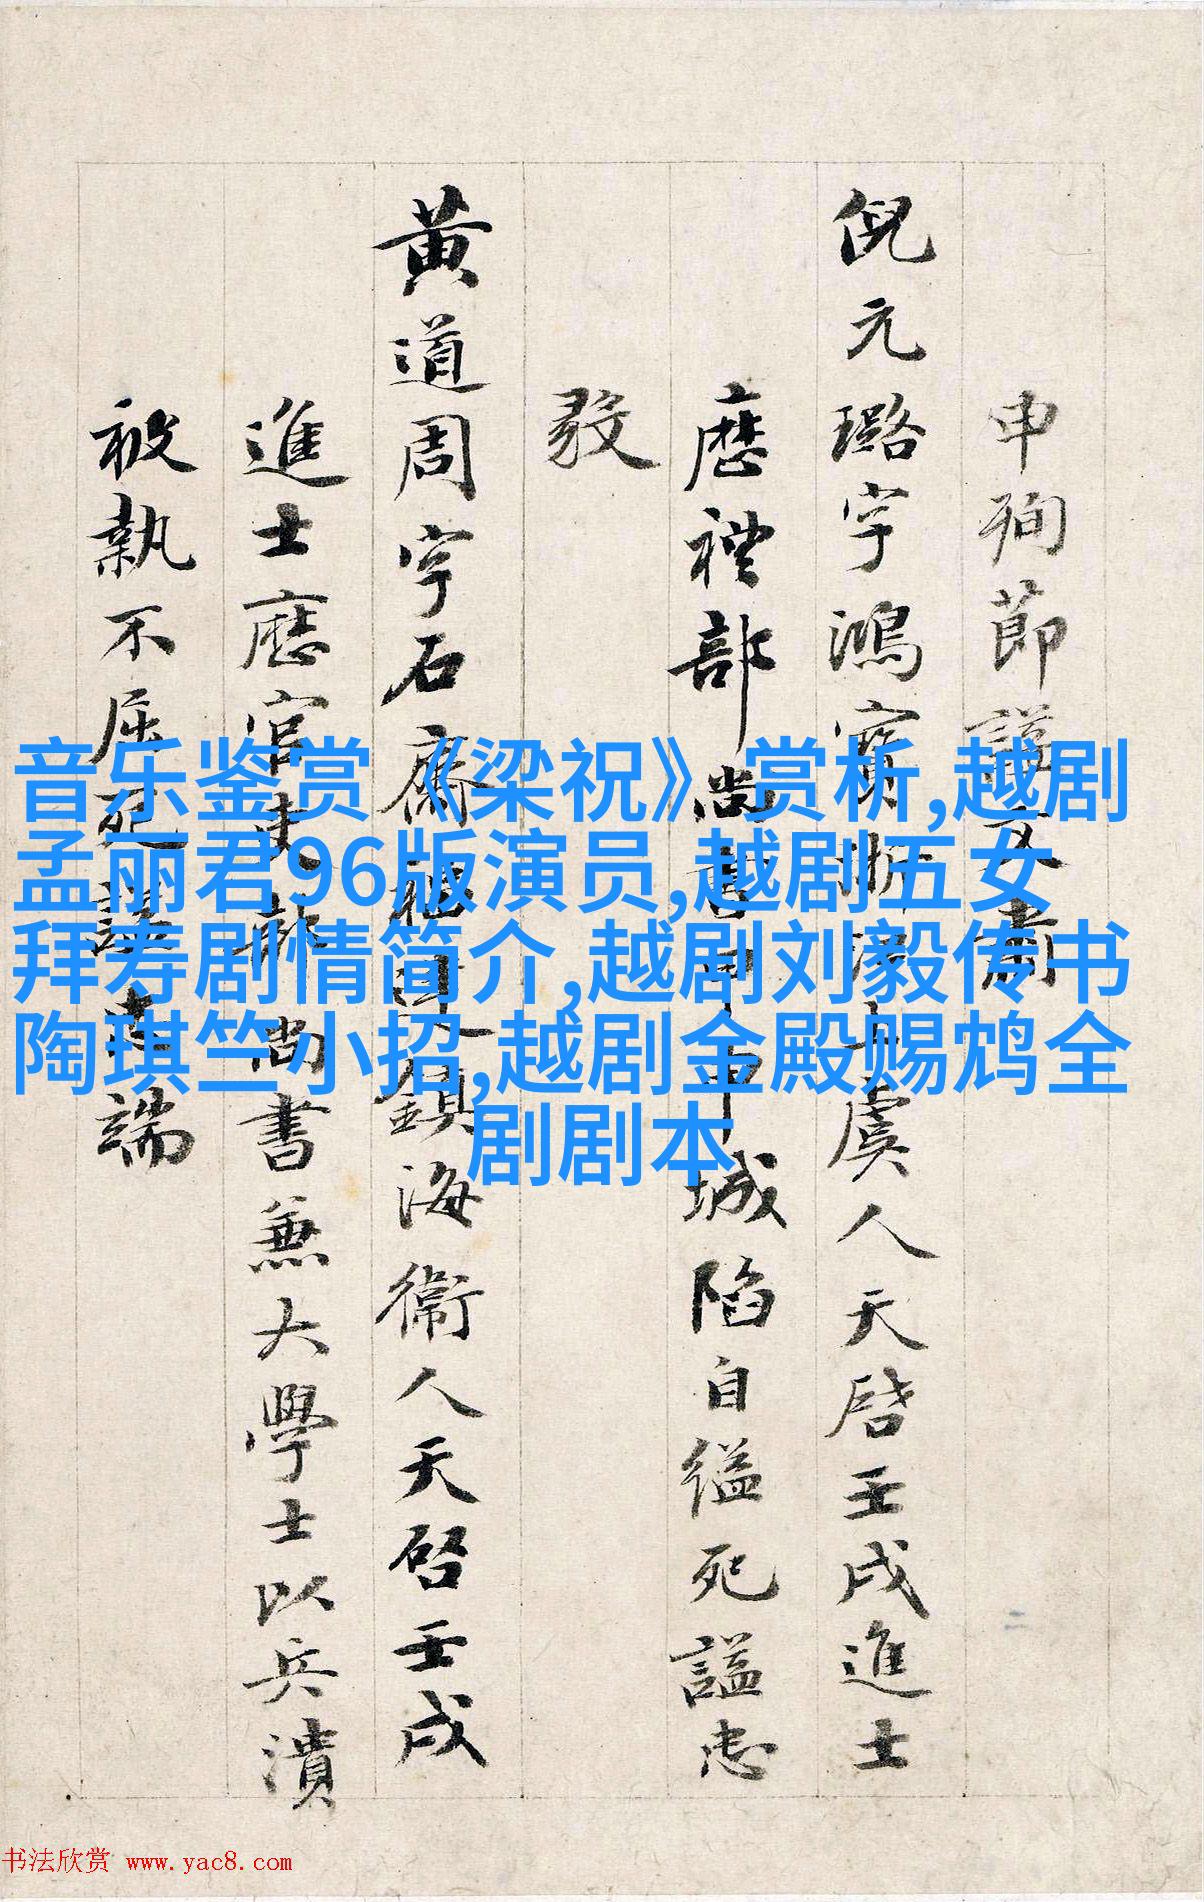 申殉節諡文肅
倪元璐字鴻寶浙江上虞人天啓壬戌進士
厯禮部尚書甲申城陷自縊死諡忠
毅
黄道周字石齋福建鎮海衞人天啓壬戌
進士厯官吏部尚書兼大學士以兵潰
被執不屈死諡忠端
音乐鉴赏《梁祝》赏析,越剧
孟丽君96版演员,越剧五女
拜寿剧情简介,越剧刘毅传书
陶琪竺小招,越剧金殿赐鸩全
剧剧本
书法欣赏 www.yac8.com